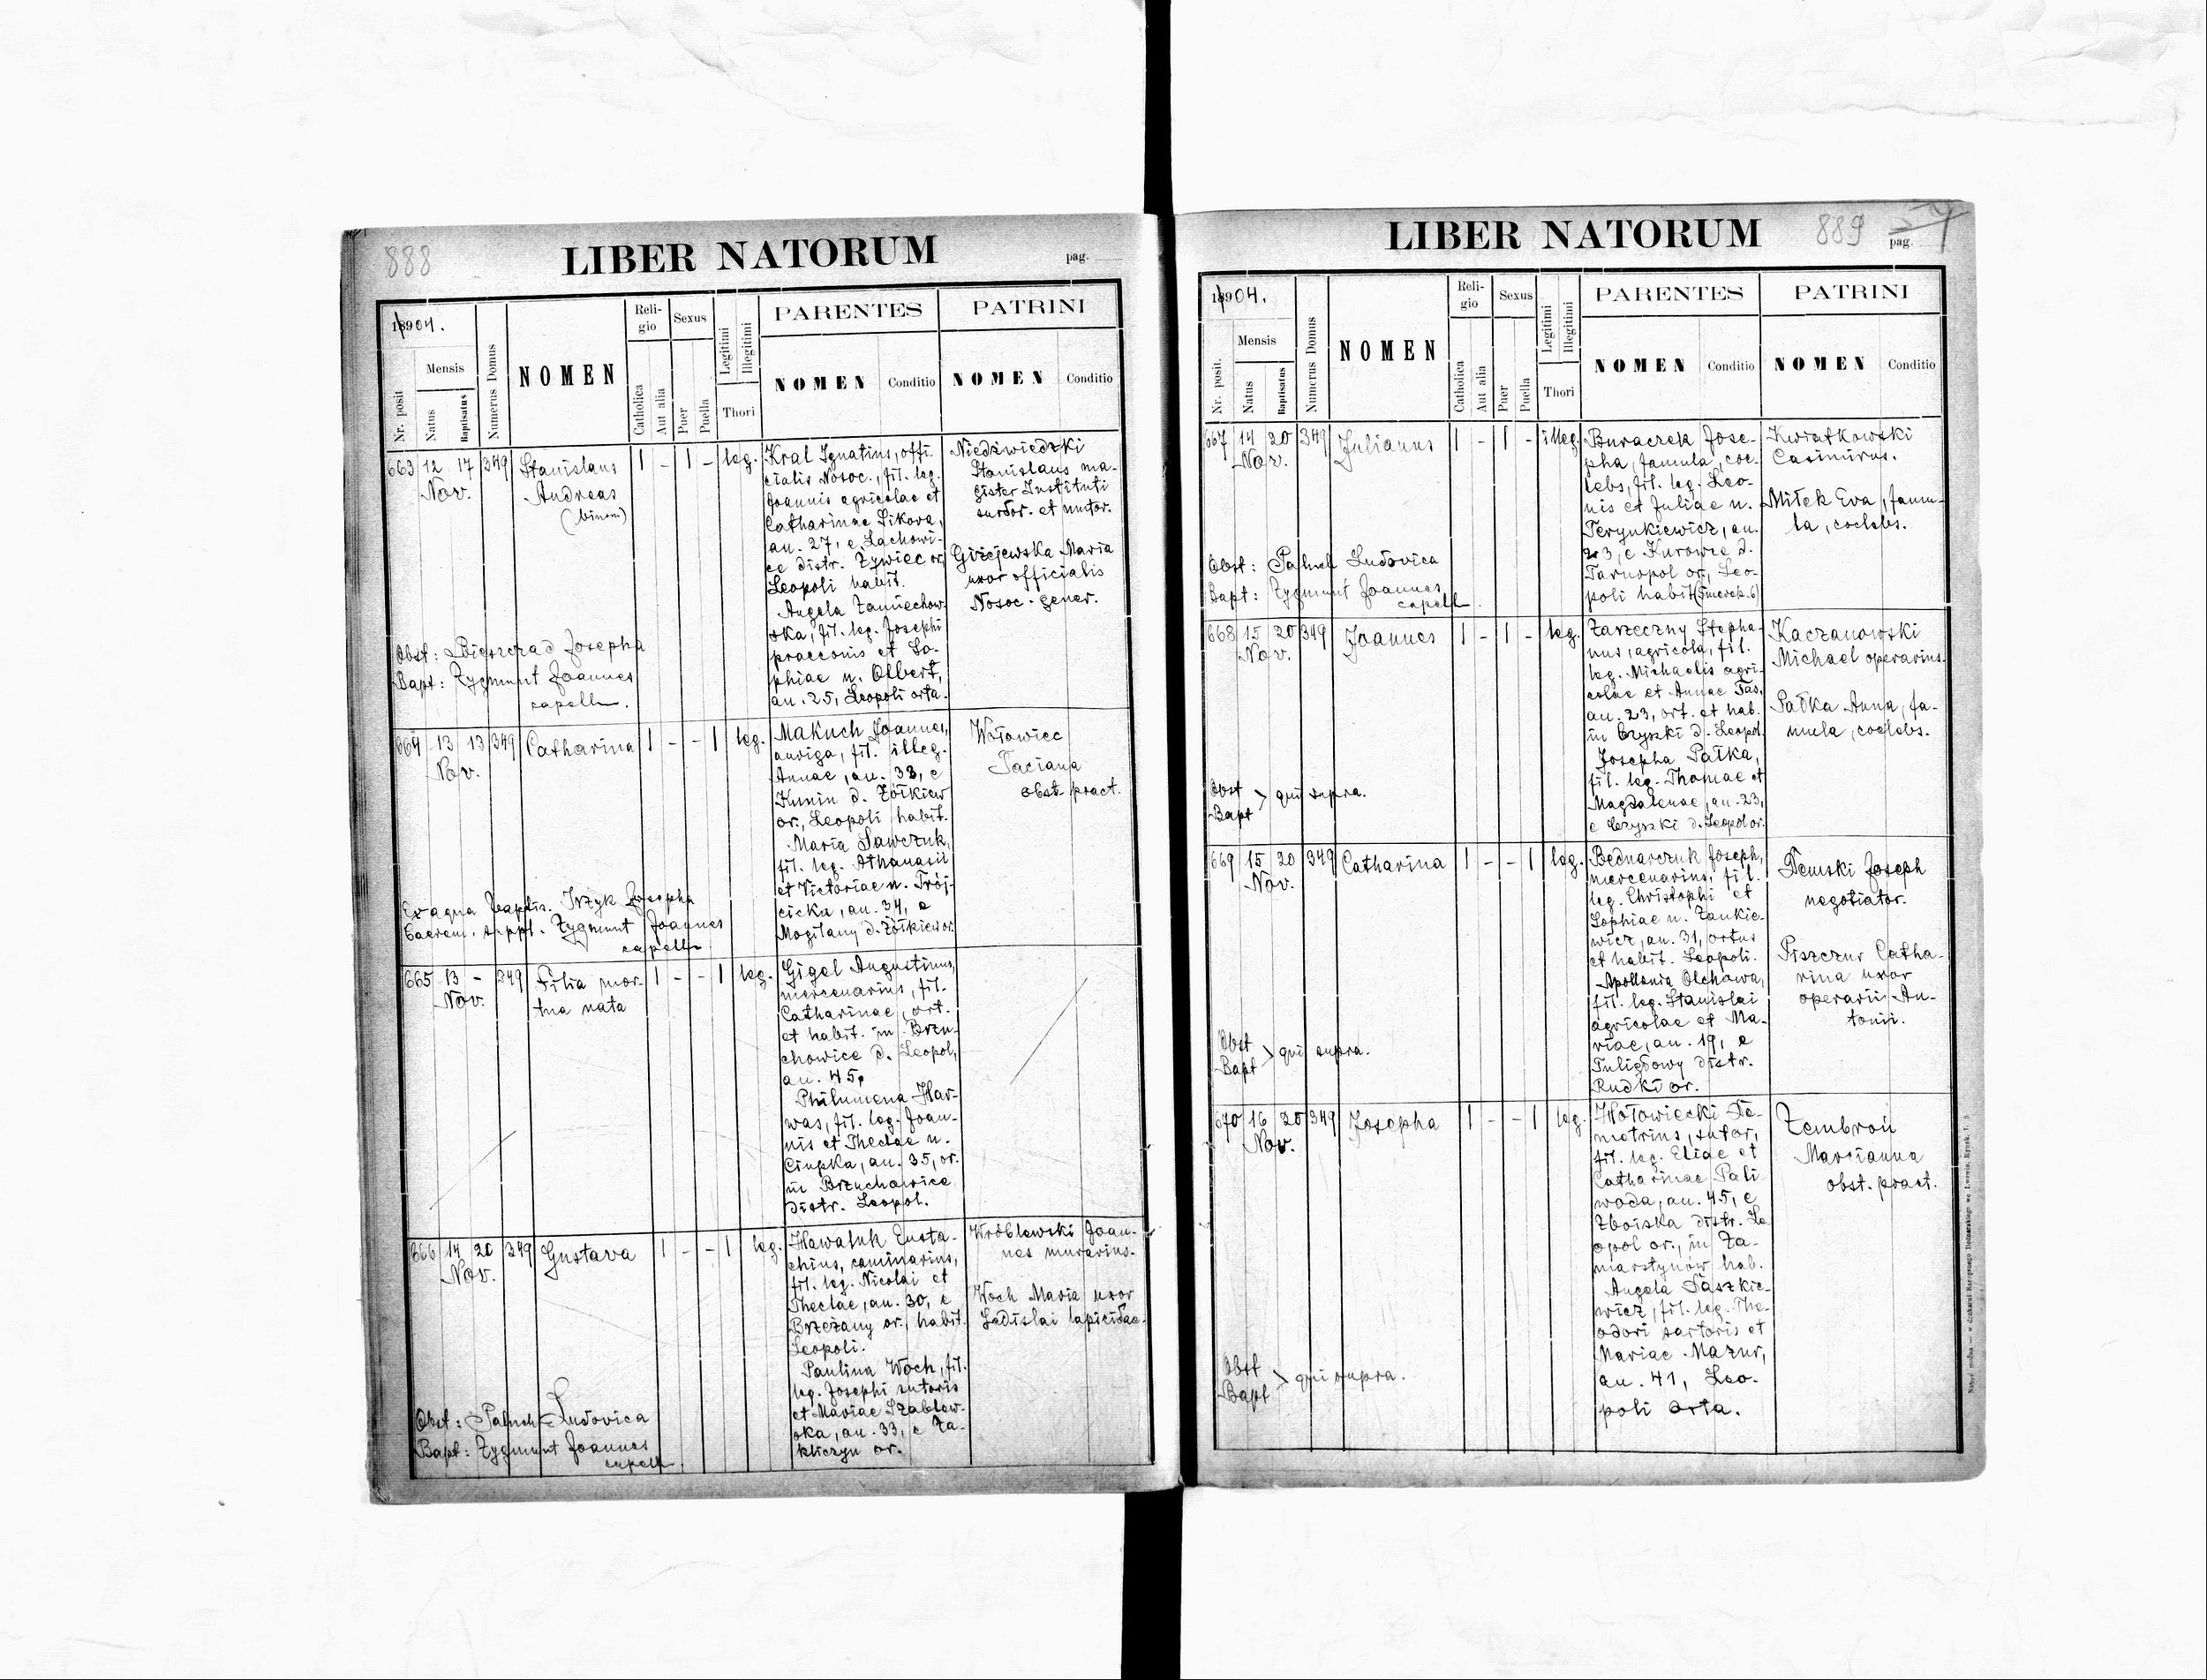 888
LIBER NATORUM
pag.
1904.
Nr. posit
Mensis
Natus
Baptisatus
Numerus Domus
NOMEN
Reli-
gio
Catholica
Aut alia
Sexus
Puer
Puella
Legitimi
Illegitimi
Thori
PARENTES
NOMEN
Conditio
PATRINI
NOMEN
Conditio
663 12 17 349 Stanislaus 1 - 1 - leg.
Nov.
Andreas
(binom)
Kral Ignatius, offi-
cialis Nosoc., fil. leg.
Joannis agricolae et
Catharinae Sikora,
an. 27, e Lachowi-
ce distr. Żywiec or.
Leopoli habit.
Angela Zaniechow-
ska, fil. leg. Josephi
praeconis et So-
phiae n. Olbert,
an. 25, Leopoli orta.
Niedźwiedzki
Stanislaus ma-
gister Instituti
surdor. et mutor.
Giżejewska Maria
uxor officialis
Nosoc. gener.
Obst: Bieszczad Josepha
Bapt: Zygmunt Joannes
capell.
664 13 13 349 Catharina 1 - - 1 leg.
Nov.
Makuch Joannes,
auriga, fil. illeg.
Annae, an. 33, e
Kunin d. Żółkiew
or., Leopoli habit.
Maria Sawczuk,
fil. leg. Athanasii
et Victoriae n. Trój-
cicka, an. 34, e
Mogilany d. Żółkiew or.
Wołowiec
Taciana
obst. pract.
Ex aqua baptis. Irzyk Josepha
Caerem. suppl. Zygmunt Joannes
capell.
665 13 - 349 Filia mor- 1 - - 1 leg.
Nov.
tua nata
Gigel Augustinus,
mercenarius, fil.
Catharinae, ort.
et habit. in Brzu-
chowice d. Leopol,
an. 45,
Philumena Har-
was, fil. leg. Joan-
nis et Theclae n.
Ciupka, an. 35, or.
in Brzuchowice
distr. Leopol.
666 14 20 349 Gustava 1 - - 1 leg.
Nov.
Hawaluk Eusta-
chius, caminarius,
fil. leg. Nicolai et
Theclae, an. 30, e
Brzeżany or., habit.
Leopoli.
Paulina Woch, fil.
leg. Josephi sutoris
et Mariae Szablew-
ska, an. 33, e Za-
kliczyn or.
Wróblewski Joan-
nes murarius.
Woch Maria uxor
Ladislai lapicidae.
Obst: Paluch Ludovica
Bapt: Zygmunt Joannes
capell.
LIBER NATORUM
889
pag.
1904.
Nr. posit.
Mensis
Natus
Baptisatus
Numerus Domus
NOMEN
Reli-
gio
Catholica
Aut alia
Sexus
Puer
Puella
Legitimi
Illegitimi
Thori
PARENTES
NOMEN
Conditio
PATRINI
NOMEN
Conditio
667 14 20 349 Julianus 1 - 1 - illeg.
Nov.
Buraczek Jose-
pha, famula, coe-
lebs, fil. leg. Leo-
nis et Juliae n.
Terynkiewicz, an.
23, e Kurowce d.
Tarnopol or., Leo-
poli habit.
Kwiatkowski
Casimirus.
Miłek Eva, famu-
la, coelebs.
Obst: Paluch Ludovica
Bapt: Zygmunt Joannes
capell.
668 15 20 349 Joannes 1 - 1 - leg.
Nov.
Zarzeczny Stepha-
nus, agricola, fil.
leg. Michaelis agri-
colae et Annae Tas,
an. 23, ort. et hab.
in Czyszki d. Leopol.
Josepha Pałka,
fil. leg. Thomae et
Magdalenae, an. 23,
e Czyszki d. Leopol or.
Kaczanowski
Michael operarius.
Pałka Anna, fa-
mula, coelebs.
Obst
Bapt > qui supra.
669 15 20 349 Catharina 1 - - 1 leg.
Nov.
Bednarczuk Joseph,
mercenarius, fil.
leg. Christophi et
Sophiae n. Zankie-
wicz, an. 31, ortus
et habit. Leopoli.
Apollonia Olchawa,
fil. leg. Stanislai
agricolae et Ma-
riae, an. 19, e
Tuligłowy distr.
Rudki or.
Demski Joseph
negotiator.
Piszczur Catha-
rina uxor
operarii An-
tonii.
Obst
Bapt > qui supra.
670 16 20 349 Josepha 1 - - 1 leg.
Nov.
Hołowiecki De-
metrius, sutor,
fil. leg. Eliae et
Catharinae Pali-
woda, an. 45, e
Zboiska distr. Le-
opol or., in Za-
marstynów hab.
Angela Daszkie-
wicz, fil. leg. The-
odori sartoris et
Mariae Mazur,
an. 41, Leo-
poli orta.
Zembroń
Marianna
obst. pract.
Obst
Bapt > qui supra.